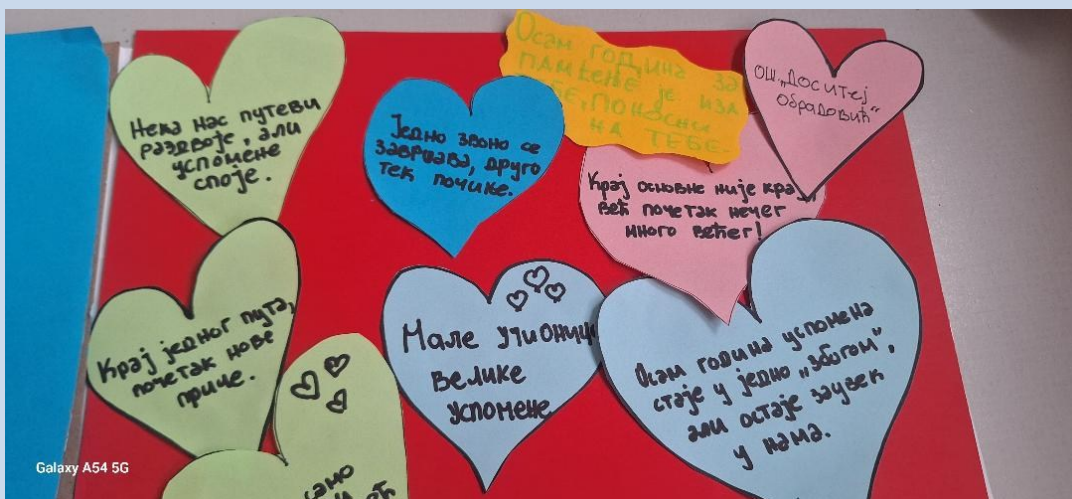 Нека нас путеви
раздвоје, али
успомене
споје.
Једно звоно се
завршава, друго
тек почиње.
Осам година за
памћење је иза
ПОНОСНИ
НА ТЕБЕ.
ОШ „Доситеј
Обрадовић“
Крај основне није
већ почетак нечег
много већег!
Крај једног пута,
почетак нове
приче.
Мале
велике
успомене
Осам година успомена
стаје у једно „збогом“,
али остаје заувек
у нама.
Galaxy A54 5G